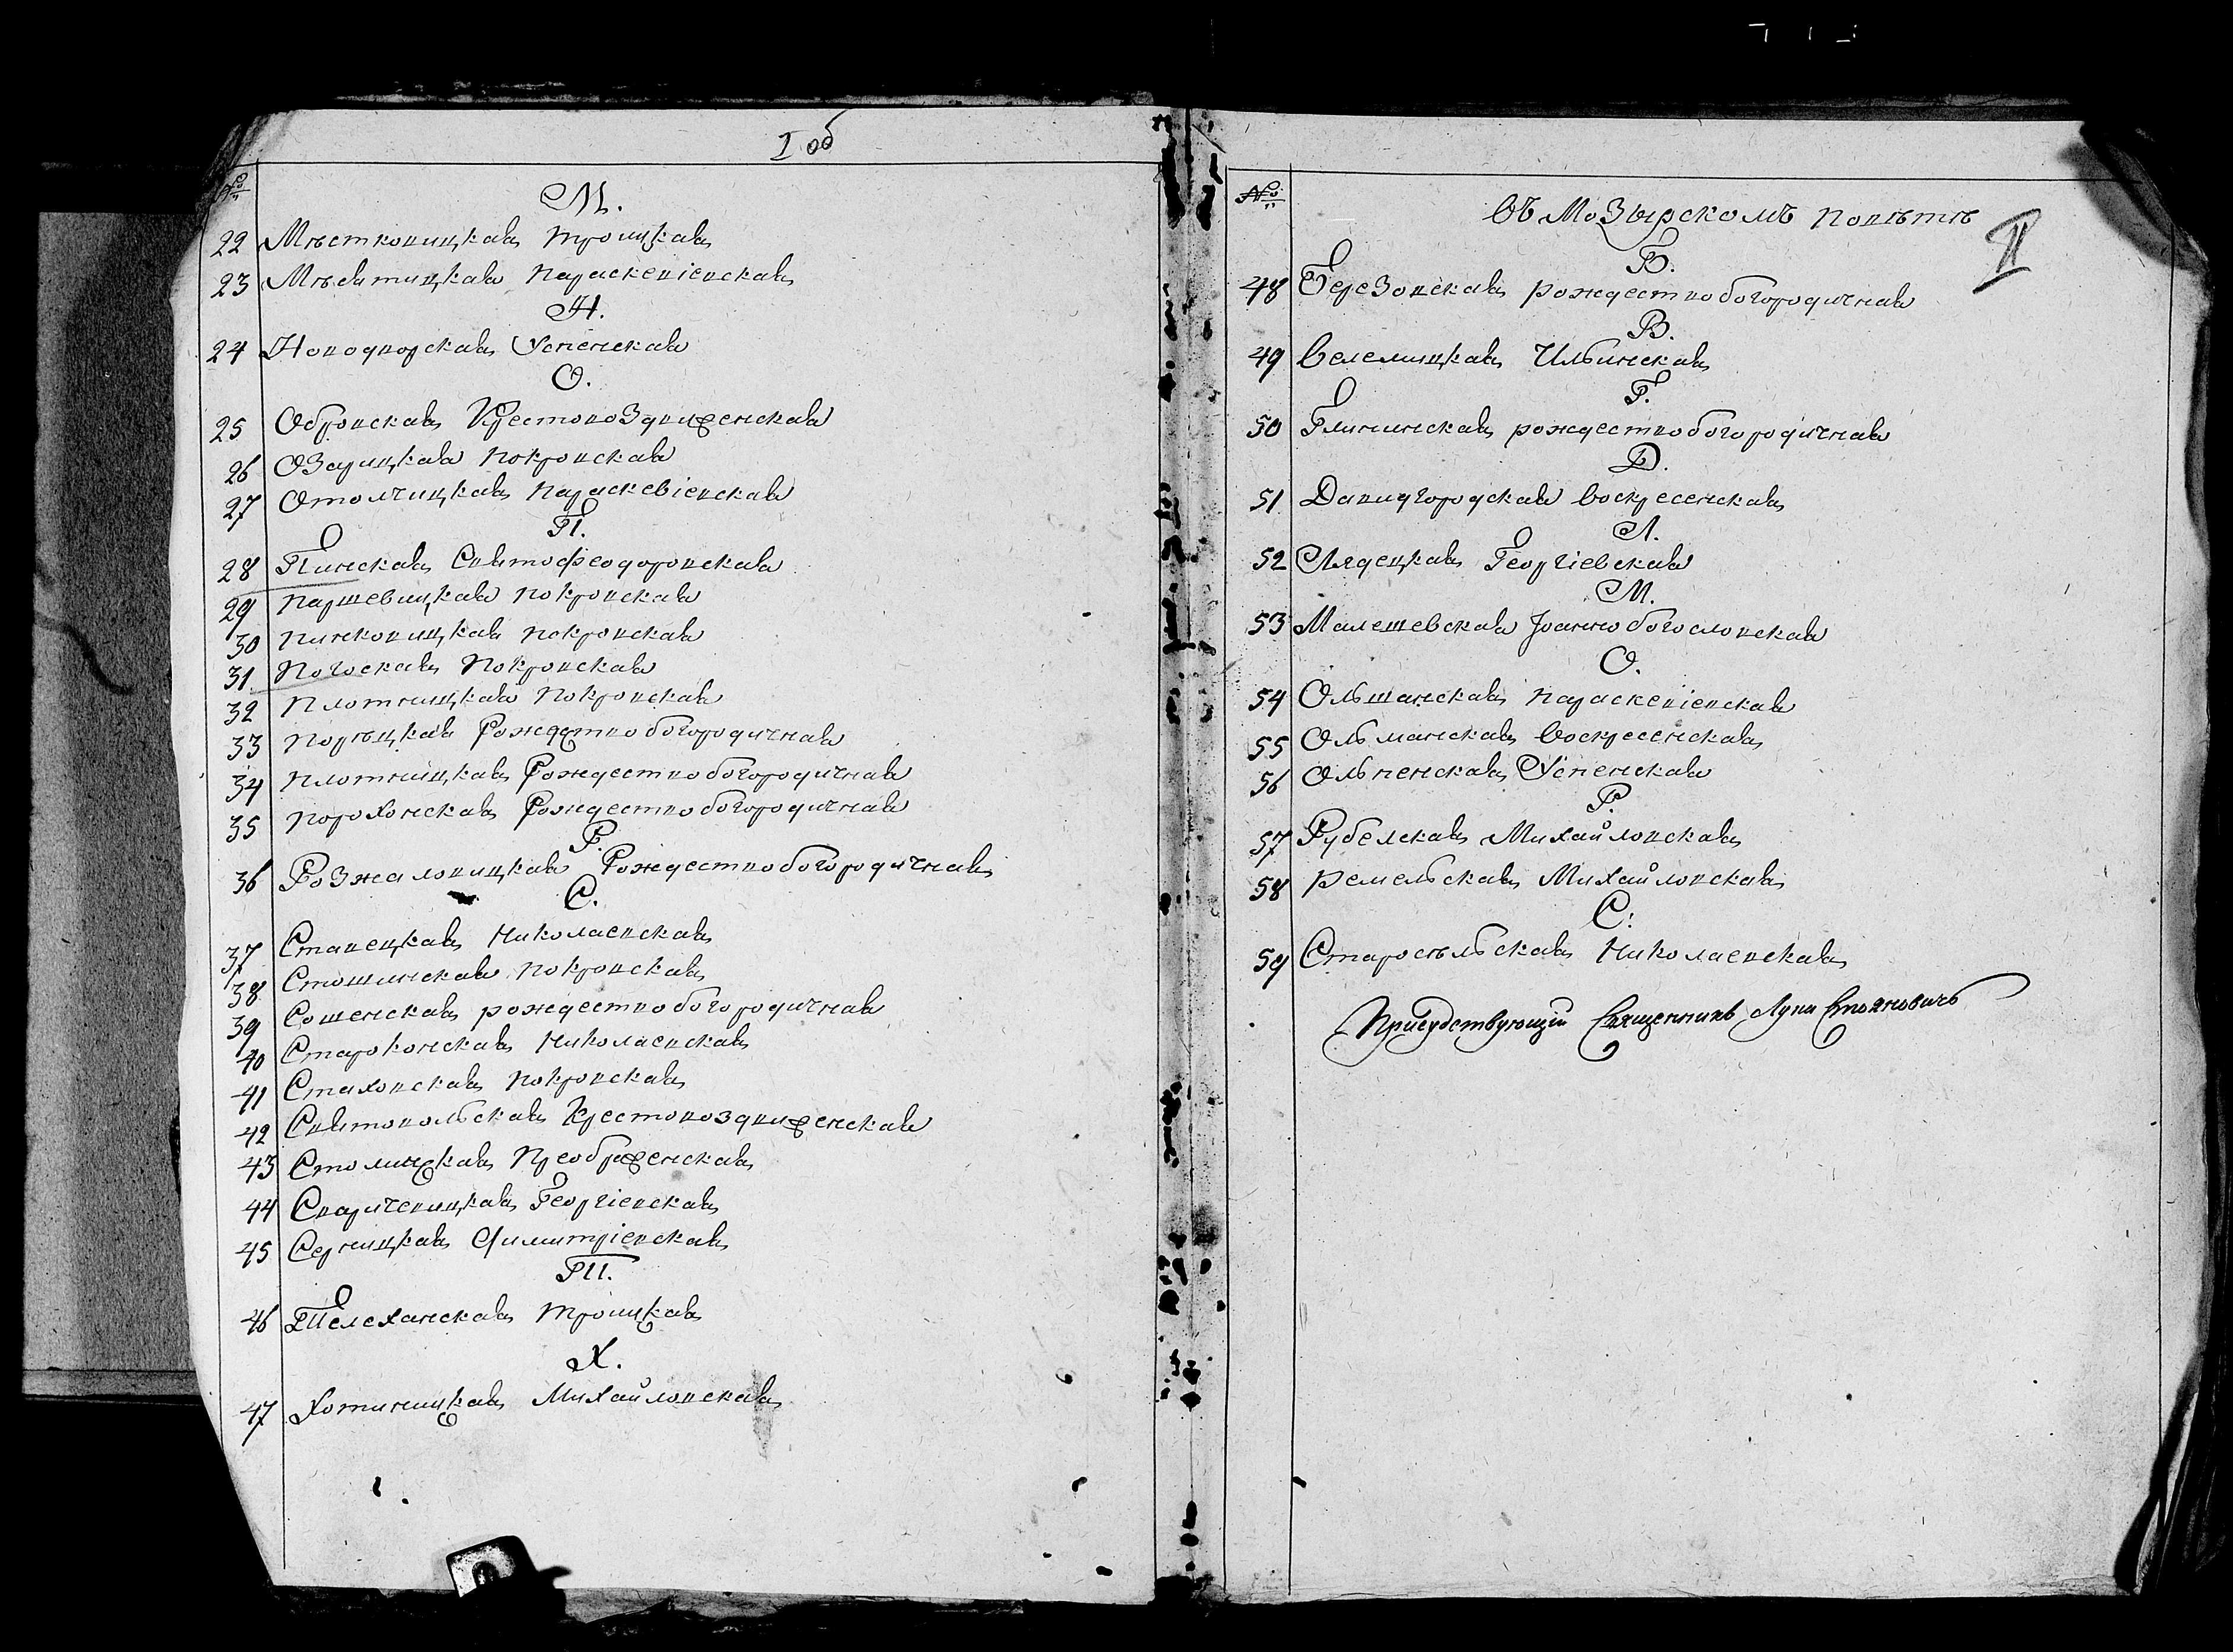 I об
№
М.
22 Мѣстковицкая троицкая
23 Мѣсятицкая параскевіевская
Н.
24 Новодворская Успенская
О.
25 Обровская Крестовоздвиженская
26 Озарицкая покровская
27 Отолчицкая параскевіевская
П.
28 Пинская Святофеодоровская
29 паршевицкая покровская
30 пинковицкая покровская
31 погоская покровская
32 плотницкая покровская
33 порѣцкая Рождествобогородичная
34 плотницкая Рождествобогородичная
35 порохонская Рождествобогородичная
Р.
36 Розжаловицкая Рождествобогородичная
С.
37 Ставецкая николаевская
38 Стошинская покровская
39 Сошенская рождествобогородичная
40 Староконская николаевская
41 Стаховская покровская
42 Святовольская Крестовоздвиженская
43 Столинская преображенская
44 Сваричевицкая Георгіевская
45 Серницкая Димитріевская
Т.
46 Телеханская троицкая
Х.
47 Хотиницкая Михайловская
№
въ Мозырскомъ повѣтѣ
II
Б.
48 Березовская рождествобогородичная
В.
49 велемицкая Ильинская
Г.
50 Глининская рождествобогородичная
Д.
51 Давидгородская воскресенская
Л.
52 Лядецкая Георгіевская
М.
53 Малешевская Іоаннобогословская
О.
54 Ольшанская параскевіевская
55 Ольманская воскресенская
56 Ольпенская Успенская
Р.
57 Рубелская Михайловская
58 ремельская Михайловская
С:
59 Старосѣльская николаевская
Присудствующій Священникъ Лука Стояновичъ